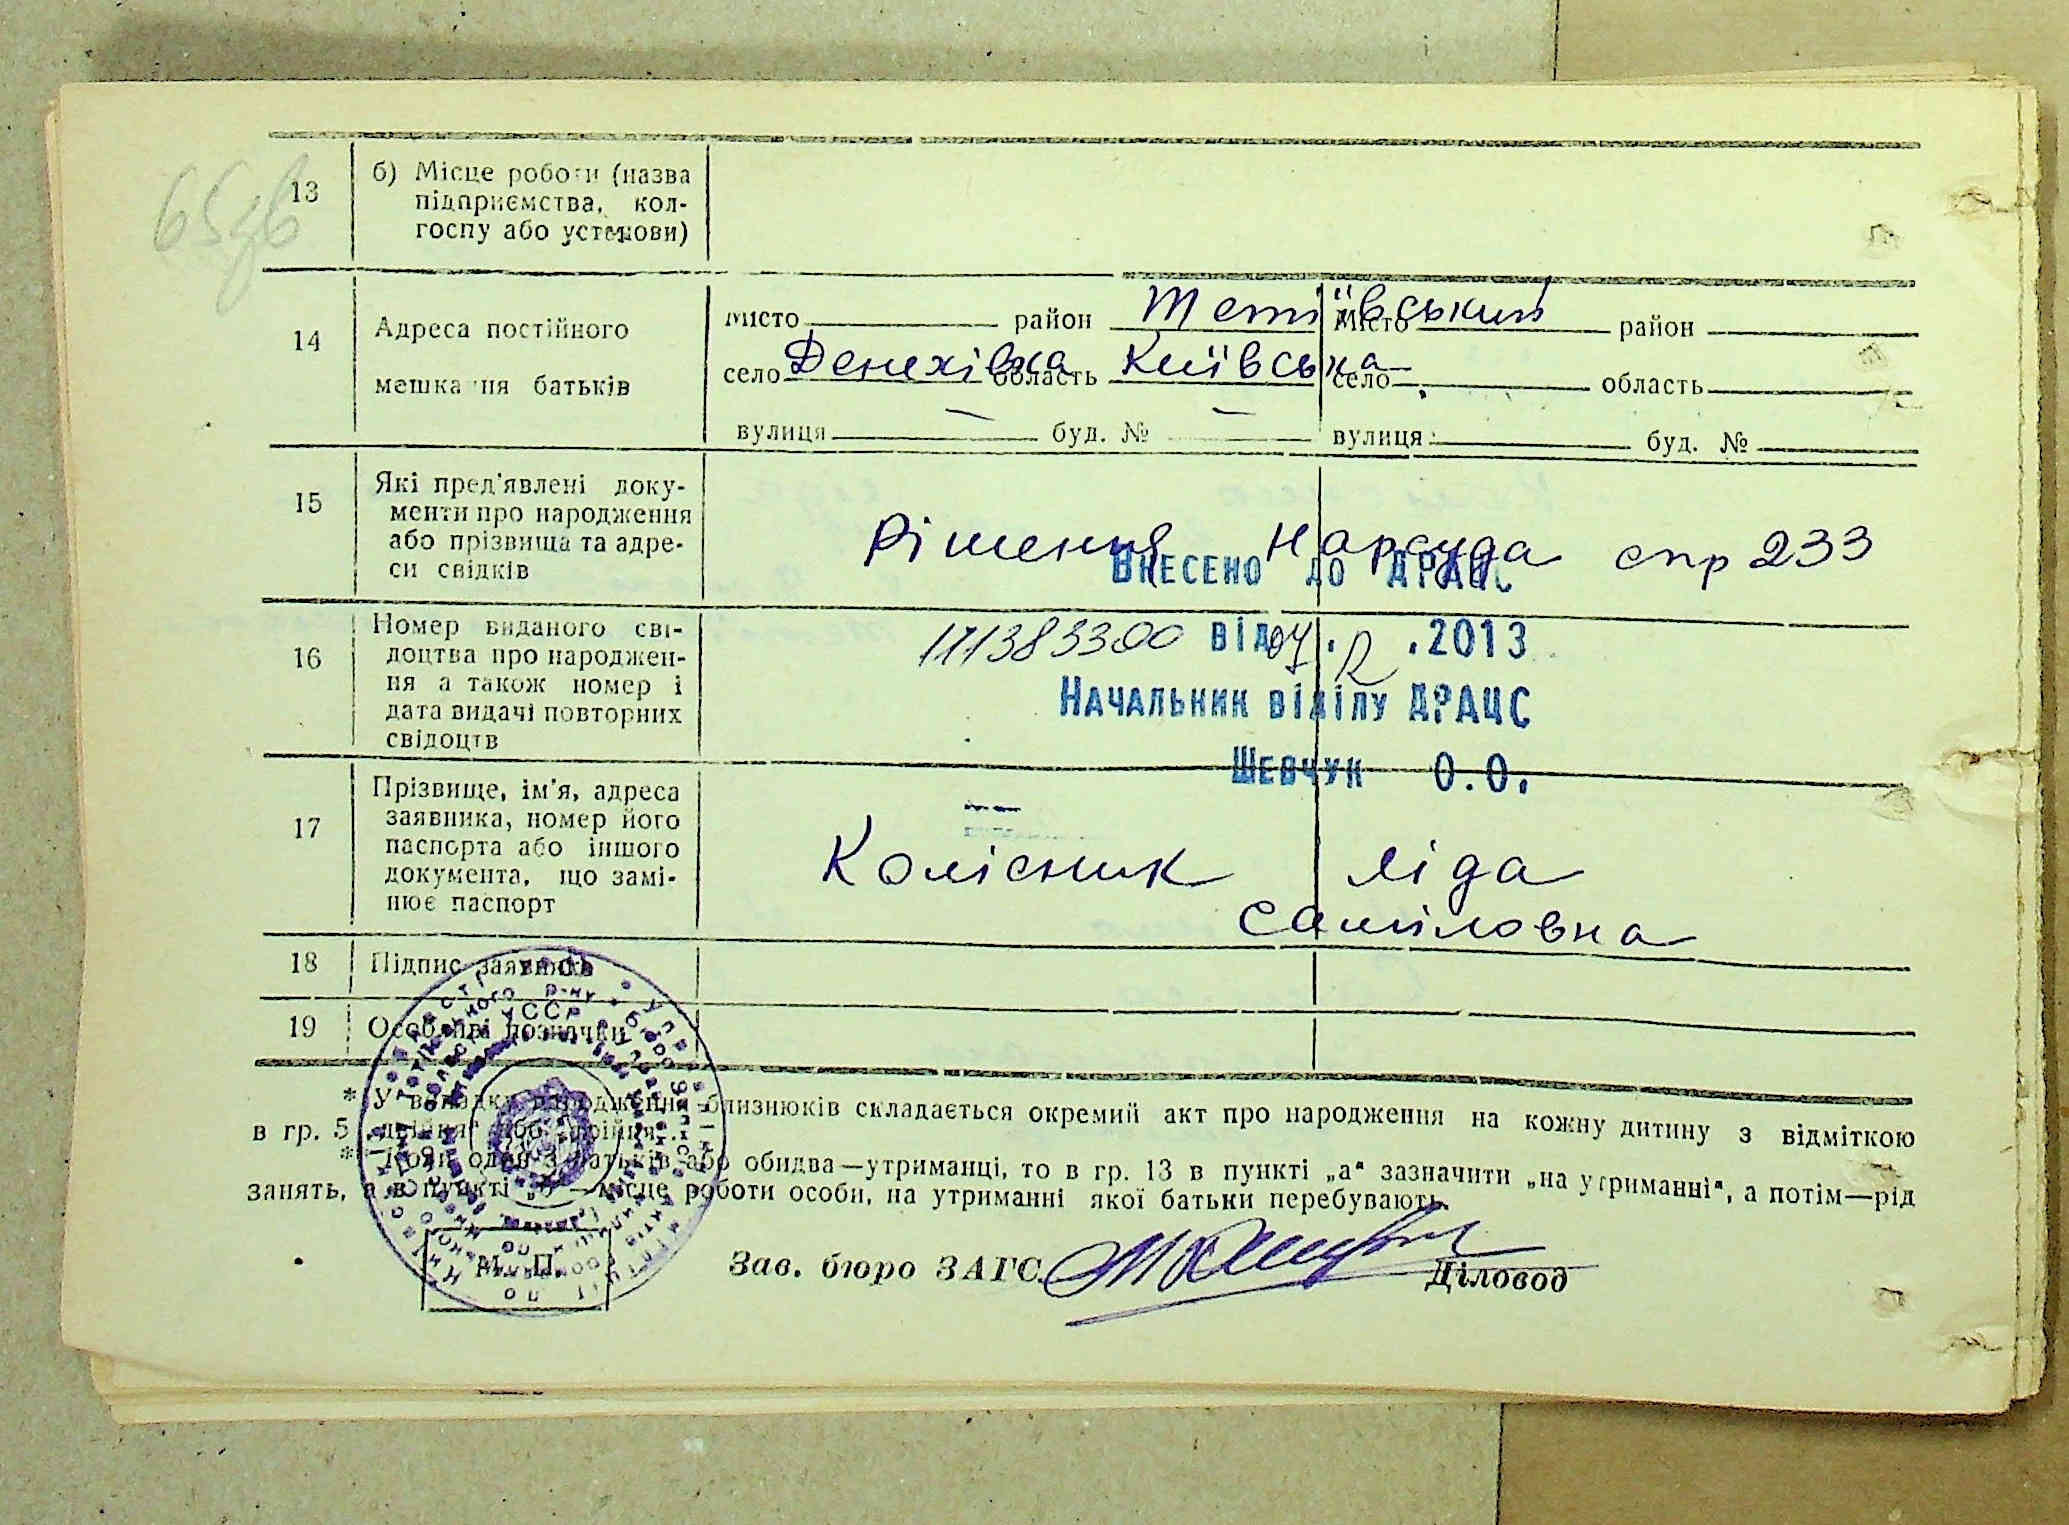 65зв
13 б) Місце роботи (назва
підприємства, кол-
госпу або установи)
14 Адреса постійного
мешкання батьків
місто район Тетіївський місто район
село Денихівка область Київська село область
вулиця — буд. № — вулиця буд. №
15 Які пред'явлені доку-
менти про народження
або прізвища та адре-
си свідків
Рішення Нарсуда спр 233
ВНЕСЕНО ДО ДРАЦС
16 Номер виданого сві-
доцтва про народжен-
ня а також номер і
дата видачі повторних
свідоцтв
111383300 ВІД 04.12.2013
НАЧАЛЬНИК ВІДІЛУ ДРАЦС
ШЕВЧУК О.О.
17 Прізвище, ім'я, адреса
заявника, номер його
паспорта або іншого
документа, що замі-
нює паспорт
Колісник Ліда
Саміловна
18 Підпис заявника
19 Особливі позначки
* У випадку народження близнюків складається окремий акт про народження на кожну дитину з відміткою
в гр. 5 „двійня" або „трійня".
** Коли один з батьків або обидва—утриманці, то в гр. 13 в пункті „а" зазначити „на утриманні", а потім—рід
занять, а в пункті „б"—місце роботи особи, на утриманні якої батьки перебувають.
М. П.
Зав. бюро ЗАГС Діловод